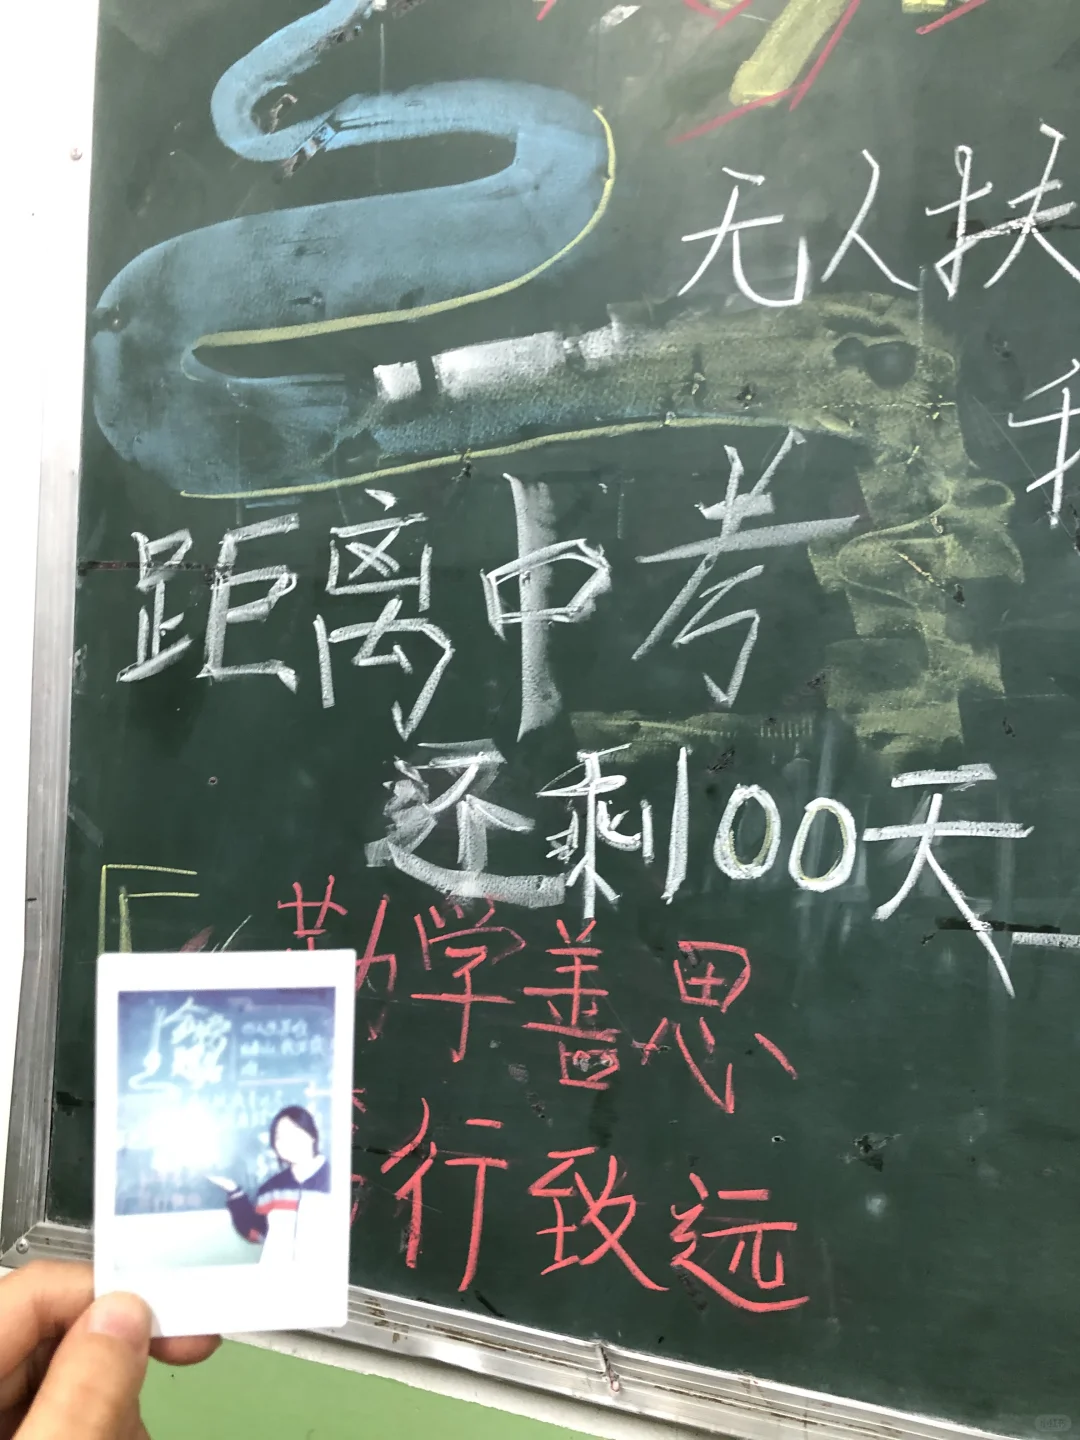 无人扶
我
距离中考
还剩100天
勤学善思
行致远
小红书